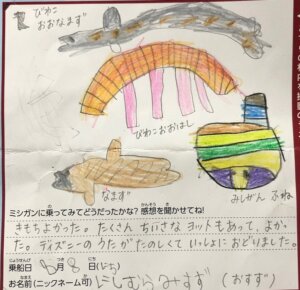 びわこ
おおなまず
びわこおおはし
なまず
みしがん ふね
ミシガンに乗ってみてどうだったかな? 感想を聞かせてね!
きもちよかった。たくさん ちいさな ヨットもあって、よかっ
た。ディズニーの うたが たのしくて いっしょに おどりました。
乗船日 6月 8日(にち)
お名前(ニックネーム可) にしむらみすず (おすず)